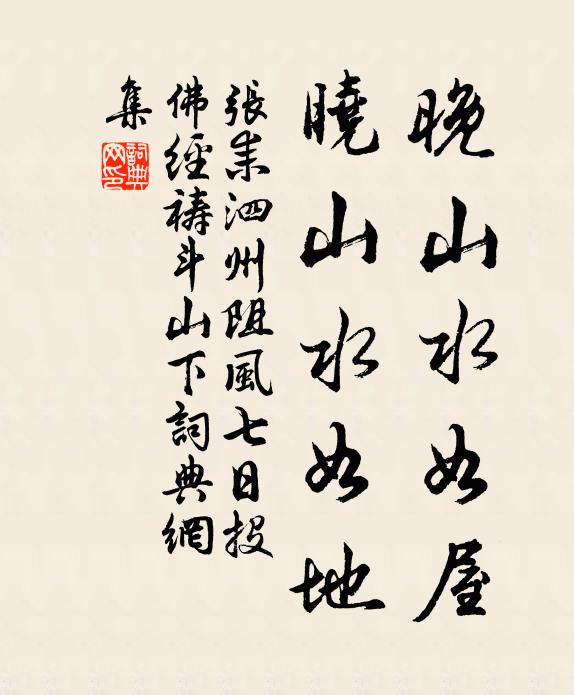 晚山水如屋
曉山水如地
張耒泗州阻風七日投
佛經禱斗山下詞典網
集
詞典
网印